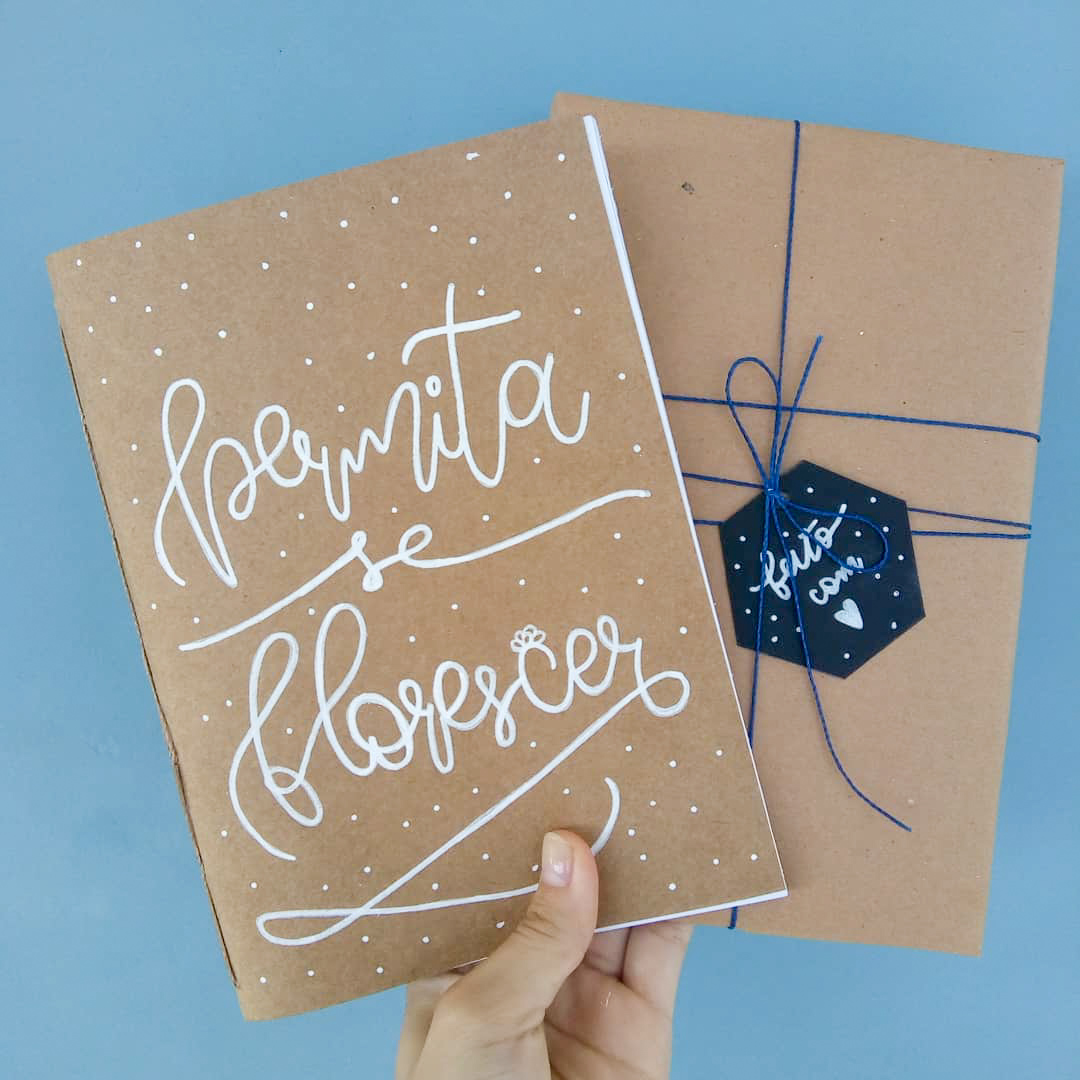 permita
se
florescer
feito
com